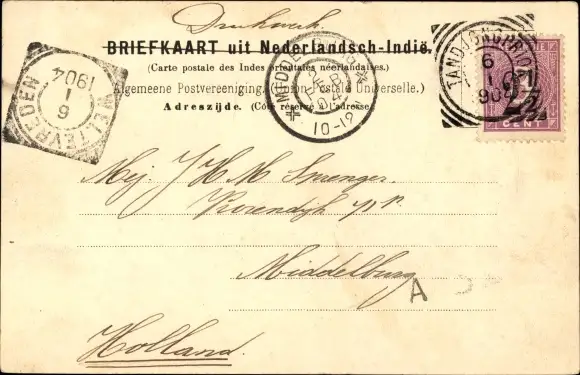 Drukwerk
BRIEFKAART uit Nederlandsch-Indië.
(Carte postale des Indes orientales néerlandaises.)
Algemeene Postvereeniging. (Union Postale Universelle.)
Adreszijde. (Côté réservé à l'adresse.)
WELTEVREDEN
6
1
1904
10-12
TANDJONGPRIOK
6
2½
CENT
Mej. J H M Sprenger
Middelburg
A
Holland.